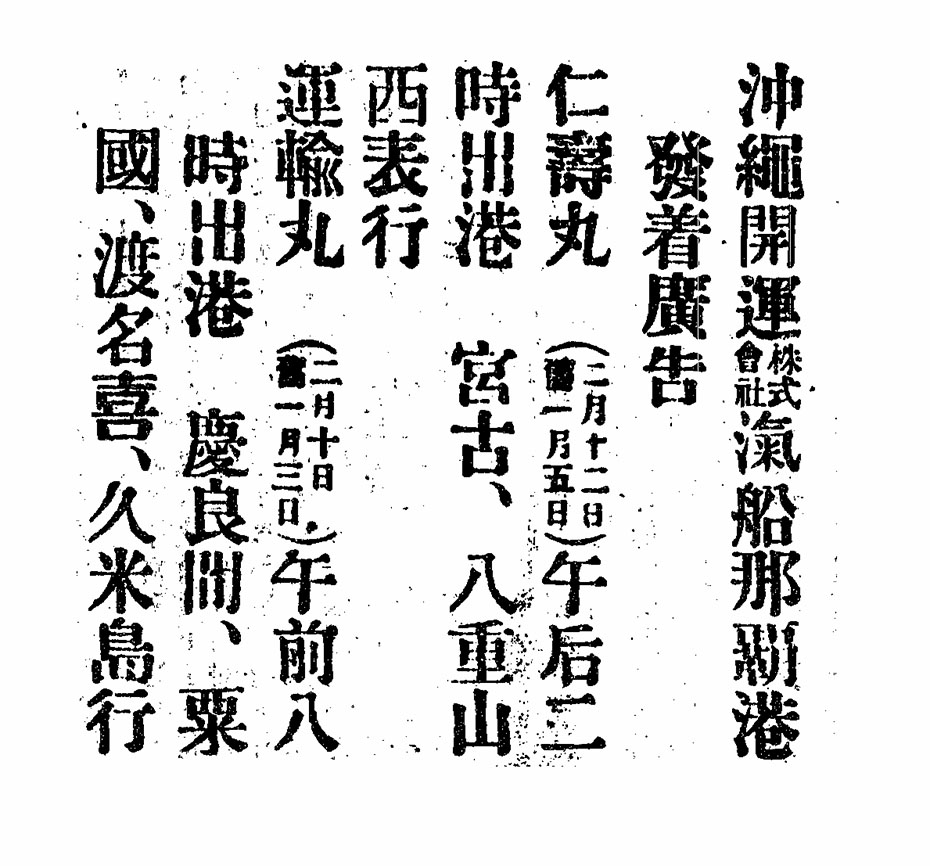 沖繩開運株式會社滊船那覇港
發着廣告
仁壽丸（二月十二日舊一月五日）午后二
時出港　宮古、八重山
西表行
運輸丸（二月十日舊一月三日）午前八
時出港　慶良間、粟
國、渡名喜、久米島行